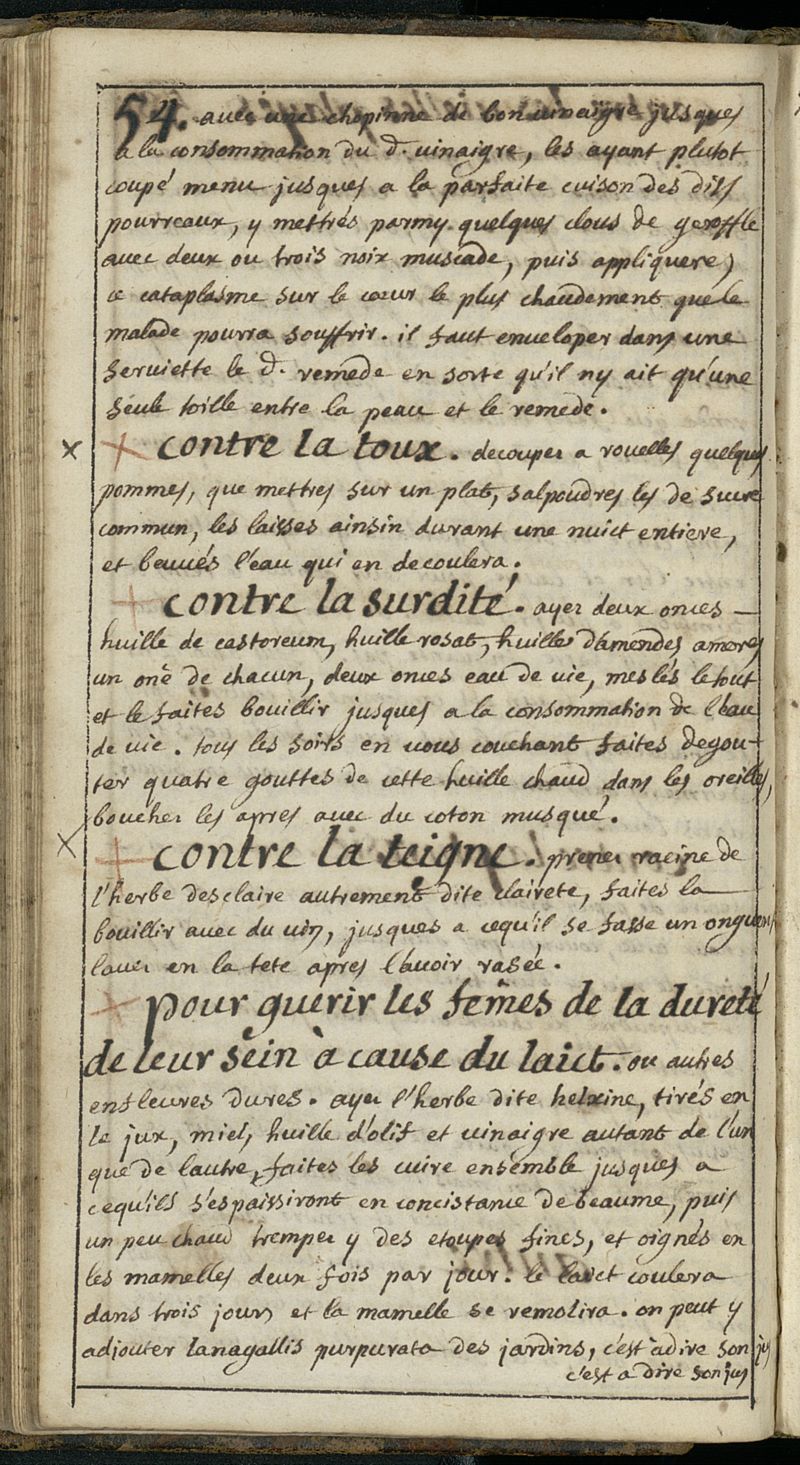 54. avec une chopinne de bon vinaigre jusques
a la consommation du d. vinaigre, les ayant plutot
coupé menu jusques a la parfaite cuison des dits
pourreaux, y mettrés parmy quelques clous de geroffle
avec deux ou trois noix muscade, puis appliquerez
ce cataplasme sur le cœur le plus chaudement que le
malade pourra souffrir. il faut enveloper dans une
serviette le d. remede en sorte qu'il ny ait qu'une
seule toille entre la peau et le remede.
× + contre la toux. decouper a rouelles quelques
pommes, que mettres sur un plat, salpoudres les de sucre
commun, les laisses ainsin durant une nuict entiere,
et beuvés l'eau qui en decoulera.
+ contre la surdité. ayer deux onces
huille de castoreum, huille rosat, huille d'amendes ameres
un once de chacun, deux onces eau de vie, meslés le tout
et le faites bouillir jusques a la consommation de l'eau
de vie. tous les soirs en vous couchant faites degou-
ter quatre gouttes de cette huille chaud dans les oreilles,
boucher les apres avec du coton musqué.
× + contre la teigne. prener racine de
l'herbe desclaire autrement dite clairete, faites la
bouillir avec du vin, jusques a cequ'il se fasse un onguent
laver en la tete apres l'avoir rasée.
+ pour guerir les fem̃es de la dureté
de leur sein à cause du laict. ou autres
enfleures dures. ayer l'herbe dite helxine, tirés en
le jux, miel, huille d'olif et vinaigre autant de l'un
que de lautre, faites les cuire ensemble jusques a
cequ'ils s'espaissiront en concistance de beaume, puis
un peu chaud tremper y des etoupes fines, et oignés en
les mamelles deux fois par jour. le laict coulera
dans trois jours et la mamelle se remolira. on peut y
adjouter lanagallis purpurata des jardins, c'est à dire son jus
c'est a dire son jus